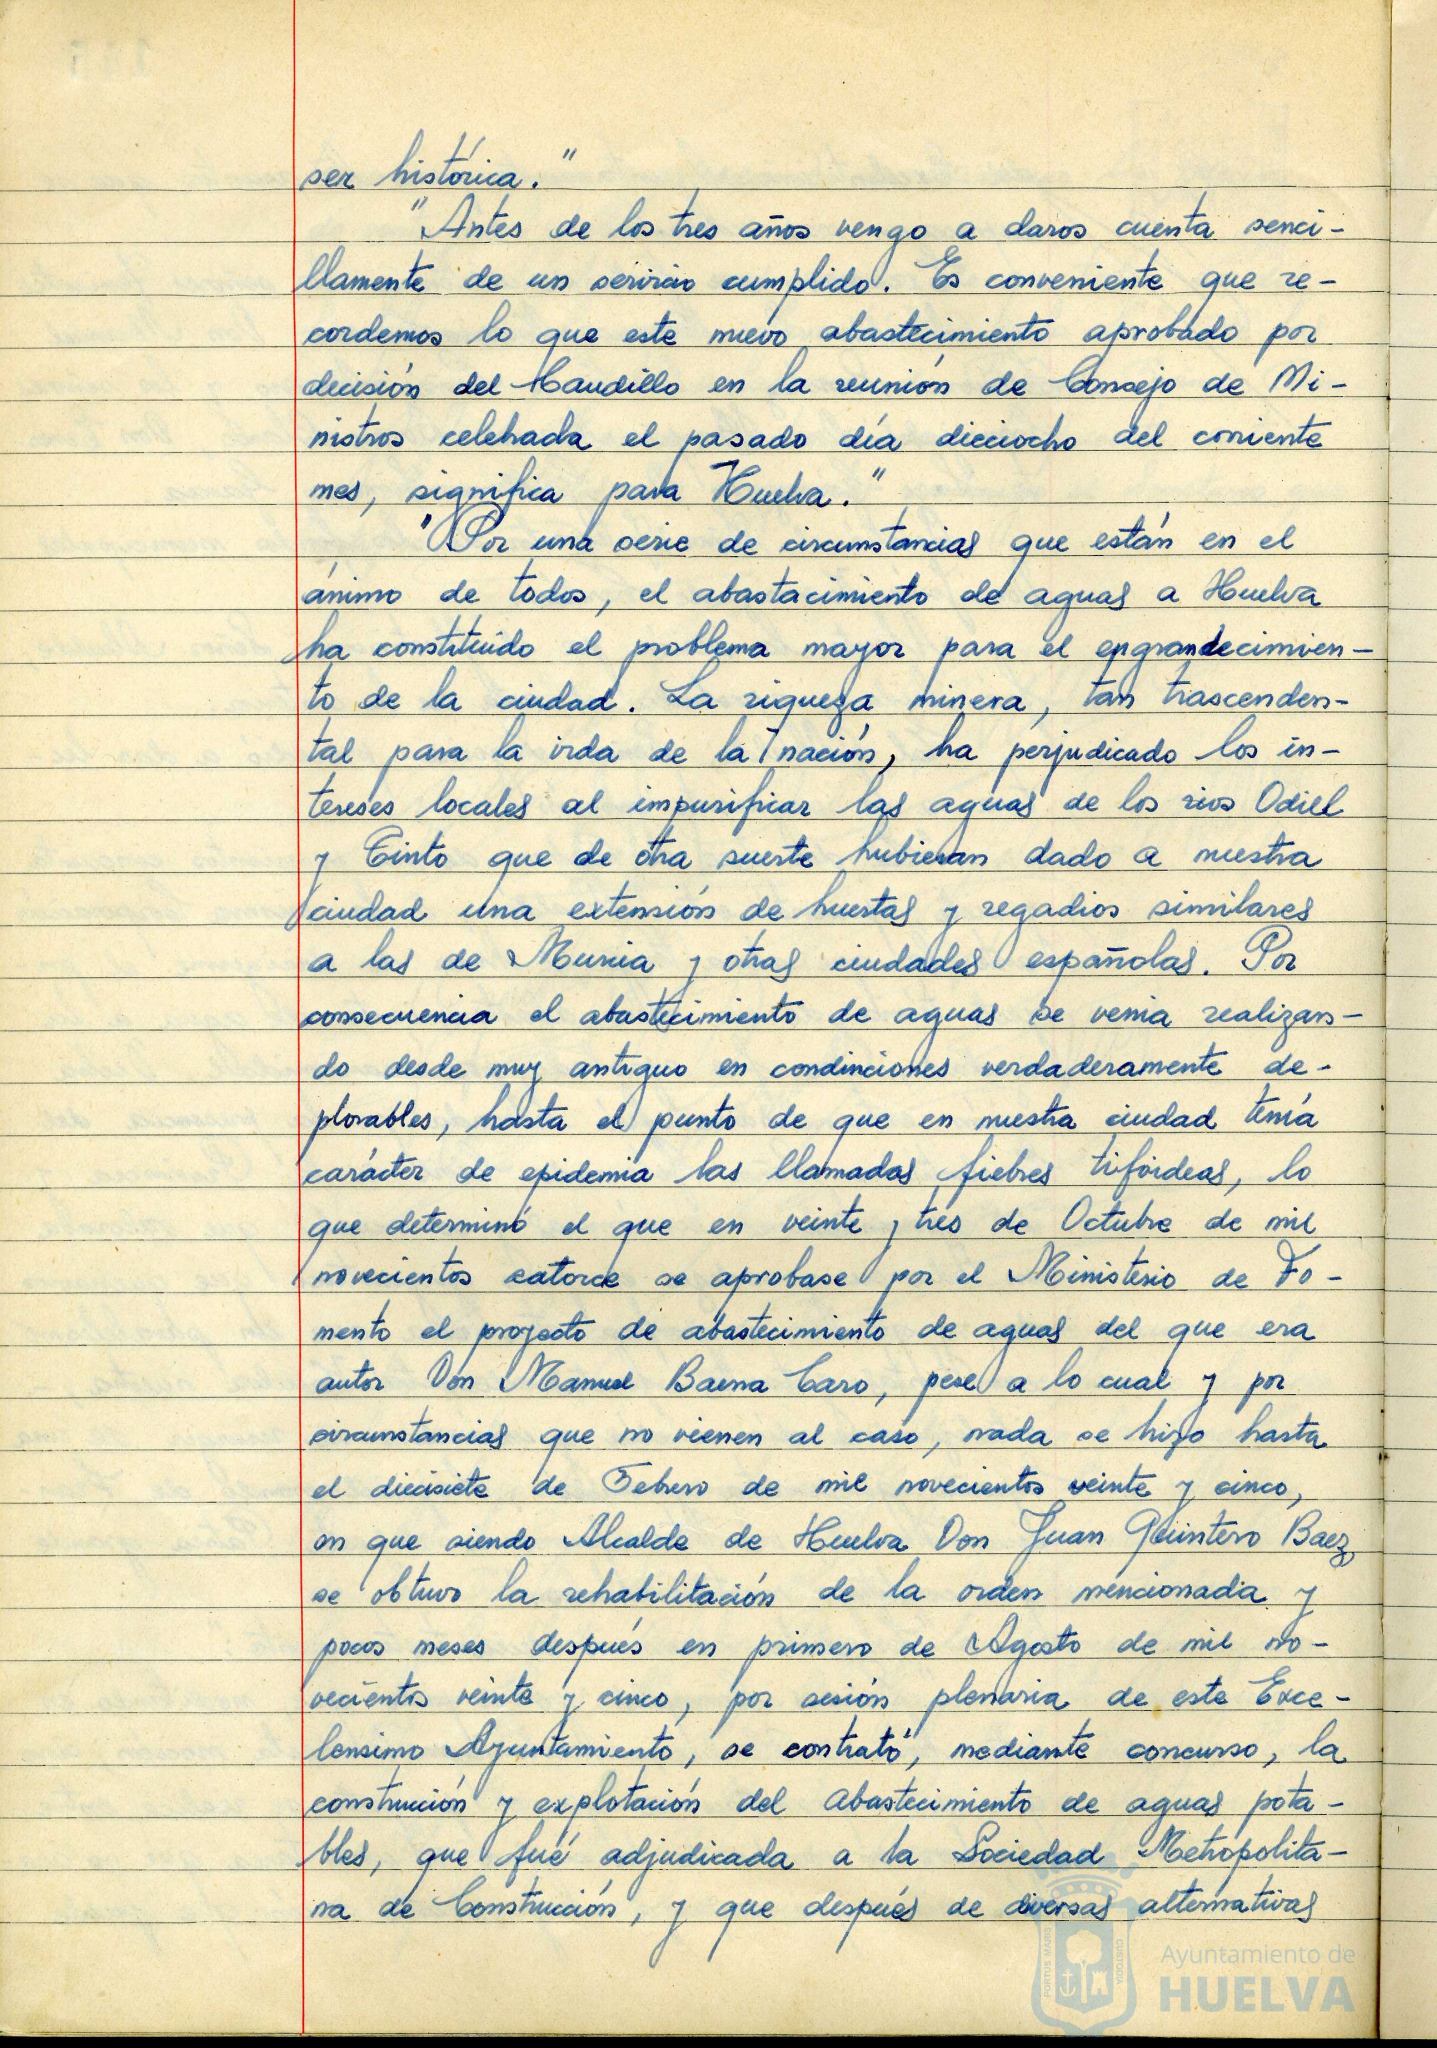 ser histórica."
"Antes de los tres años vengo a daros cuenta senci-
llamente de un servicio cumplido. Es conveniente que re-
cordemos lo que este nuevo abastecimiento aprobado por
decisión del Caudillo en la reunión de Consejo de Mi-
nistros celebrada el pasado día dieciocho del corriente
mes, significa para Huelva."
"Por una serie de circunstancias que están en el
ánimo de todos, el abastacimiento de aguas a Huelva
ha constituído el problema mayor para el engrandecimien-
to de la ciudad. La riqueza minera, tan trascenden-
tal para la vida de la nación, ha perjudicado los in-
tereses locales al impurificar las aguas de los rios Odiel
y Tinto que de otra suerte hubieran dado a nuestra
ciudad una extensión de huertas y regadios similares
a las de Murcia y otras ciudades españolas. Por
consecuencia el abastecimiento de aguas se venia realizan-
do desde muy antiguo en condinciones verdaderamente de-
plorables, hasta el punto de que en nuestra ciudad tenía
carácter de epidemia las llamadas fiebres tifóideas, lo
que determinó el que en veinte y tres de Octubre de mil
novecientos catorce se aprobase por el Ministerio de Fo-
mento el proyecto de abastecimiento de aguas del que era
autor Don Manuel Baena Caro, pese a lo cual y por
circunstancias que no vienen al caso, nada se hizo hasta
el diecisiete de Febrero de mil novecientos veinte y cinco,
en que siendo Alcalde de Huelva Don Juan Quintero Baez,
se obtuvo la rehabilitación de la orden mencionada y
pocos meses después en primero de Agosto de mil no-
vecientos veinte y cinco, por sesión plenaria de este Exce-
lensimo Ayuntamiento, se contrató, mediante concurso, la
construcción y explotación del abastecimiento de aguas pota-
bles, que fué adjudicada a la Sociedad Metropolita-
na de Construcción, y que después de diversas alternativas
PORTUS MARIS CUSTODIA
Ayuntamiento de
HUELVA